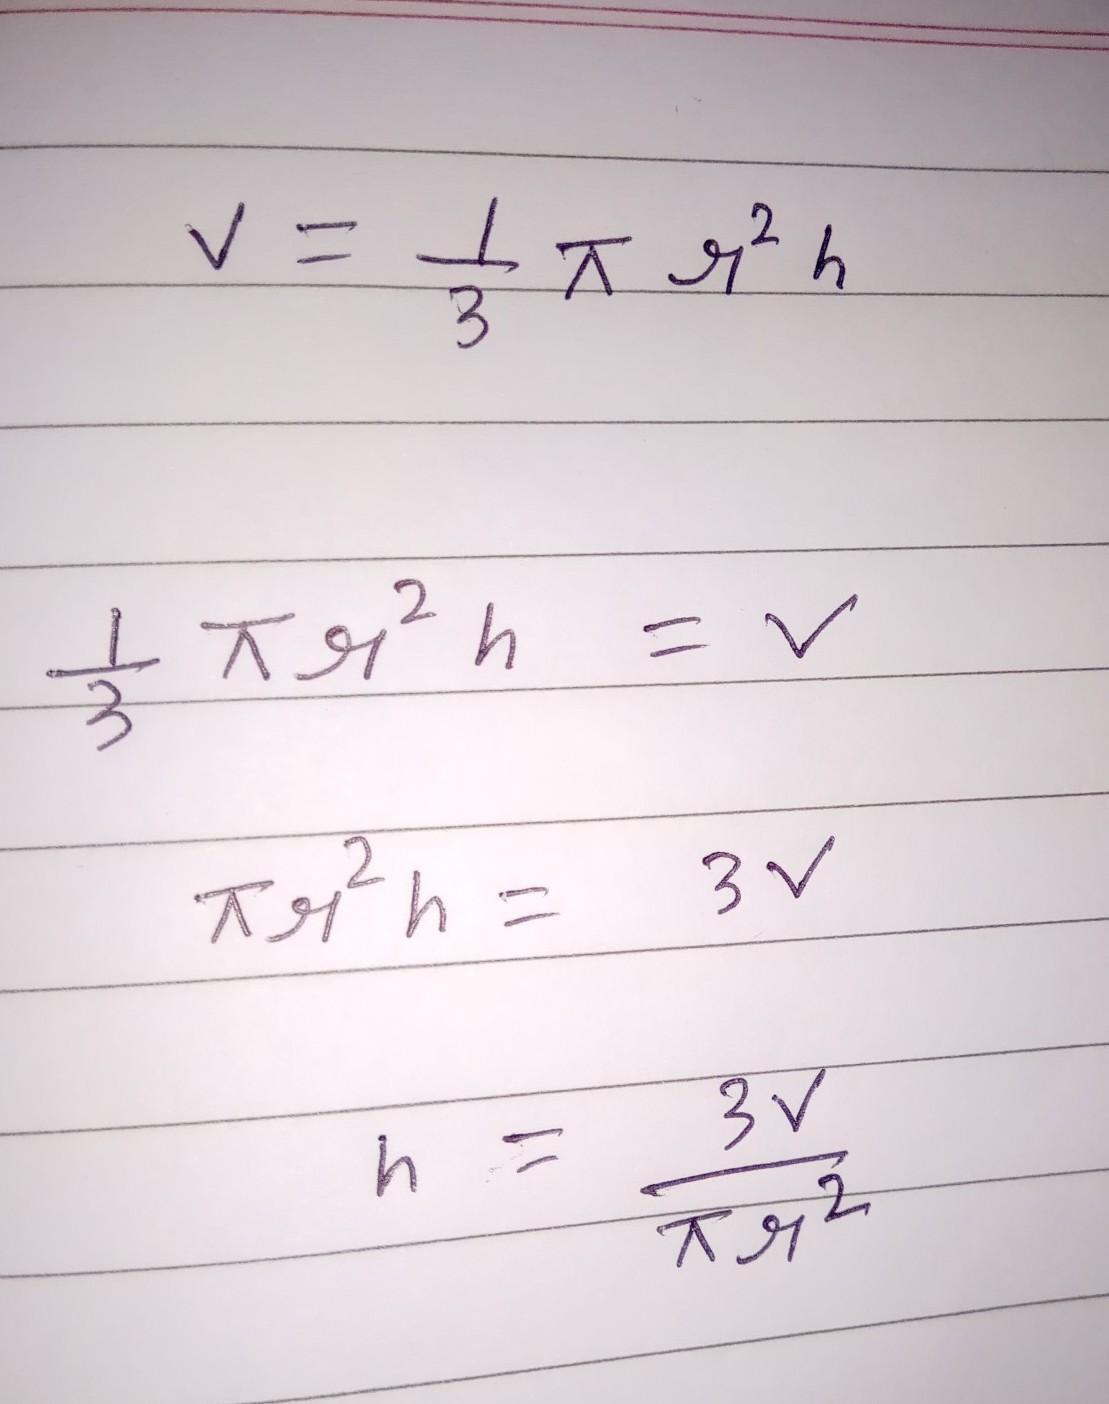 V = 1/3 π r² h
1/3 π r² h = V
π r² h = 3V
h = 3V / π r²